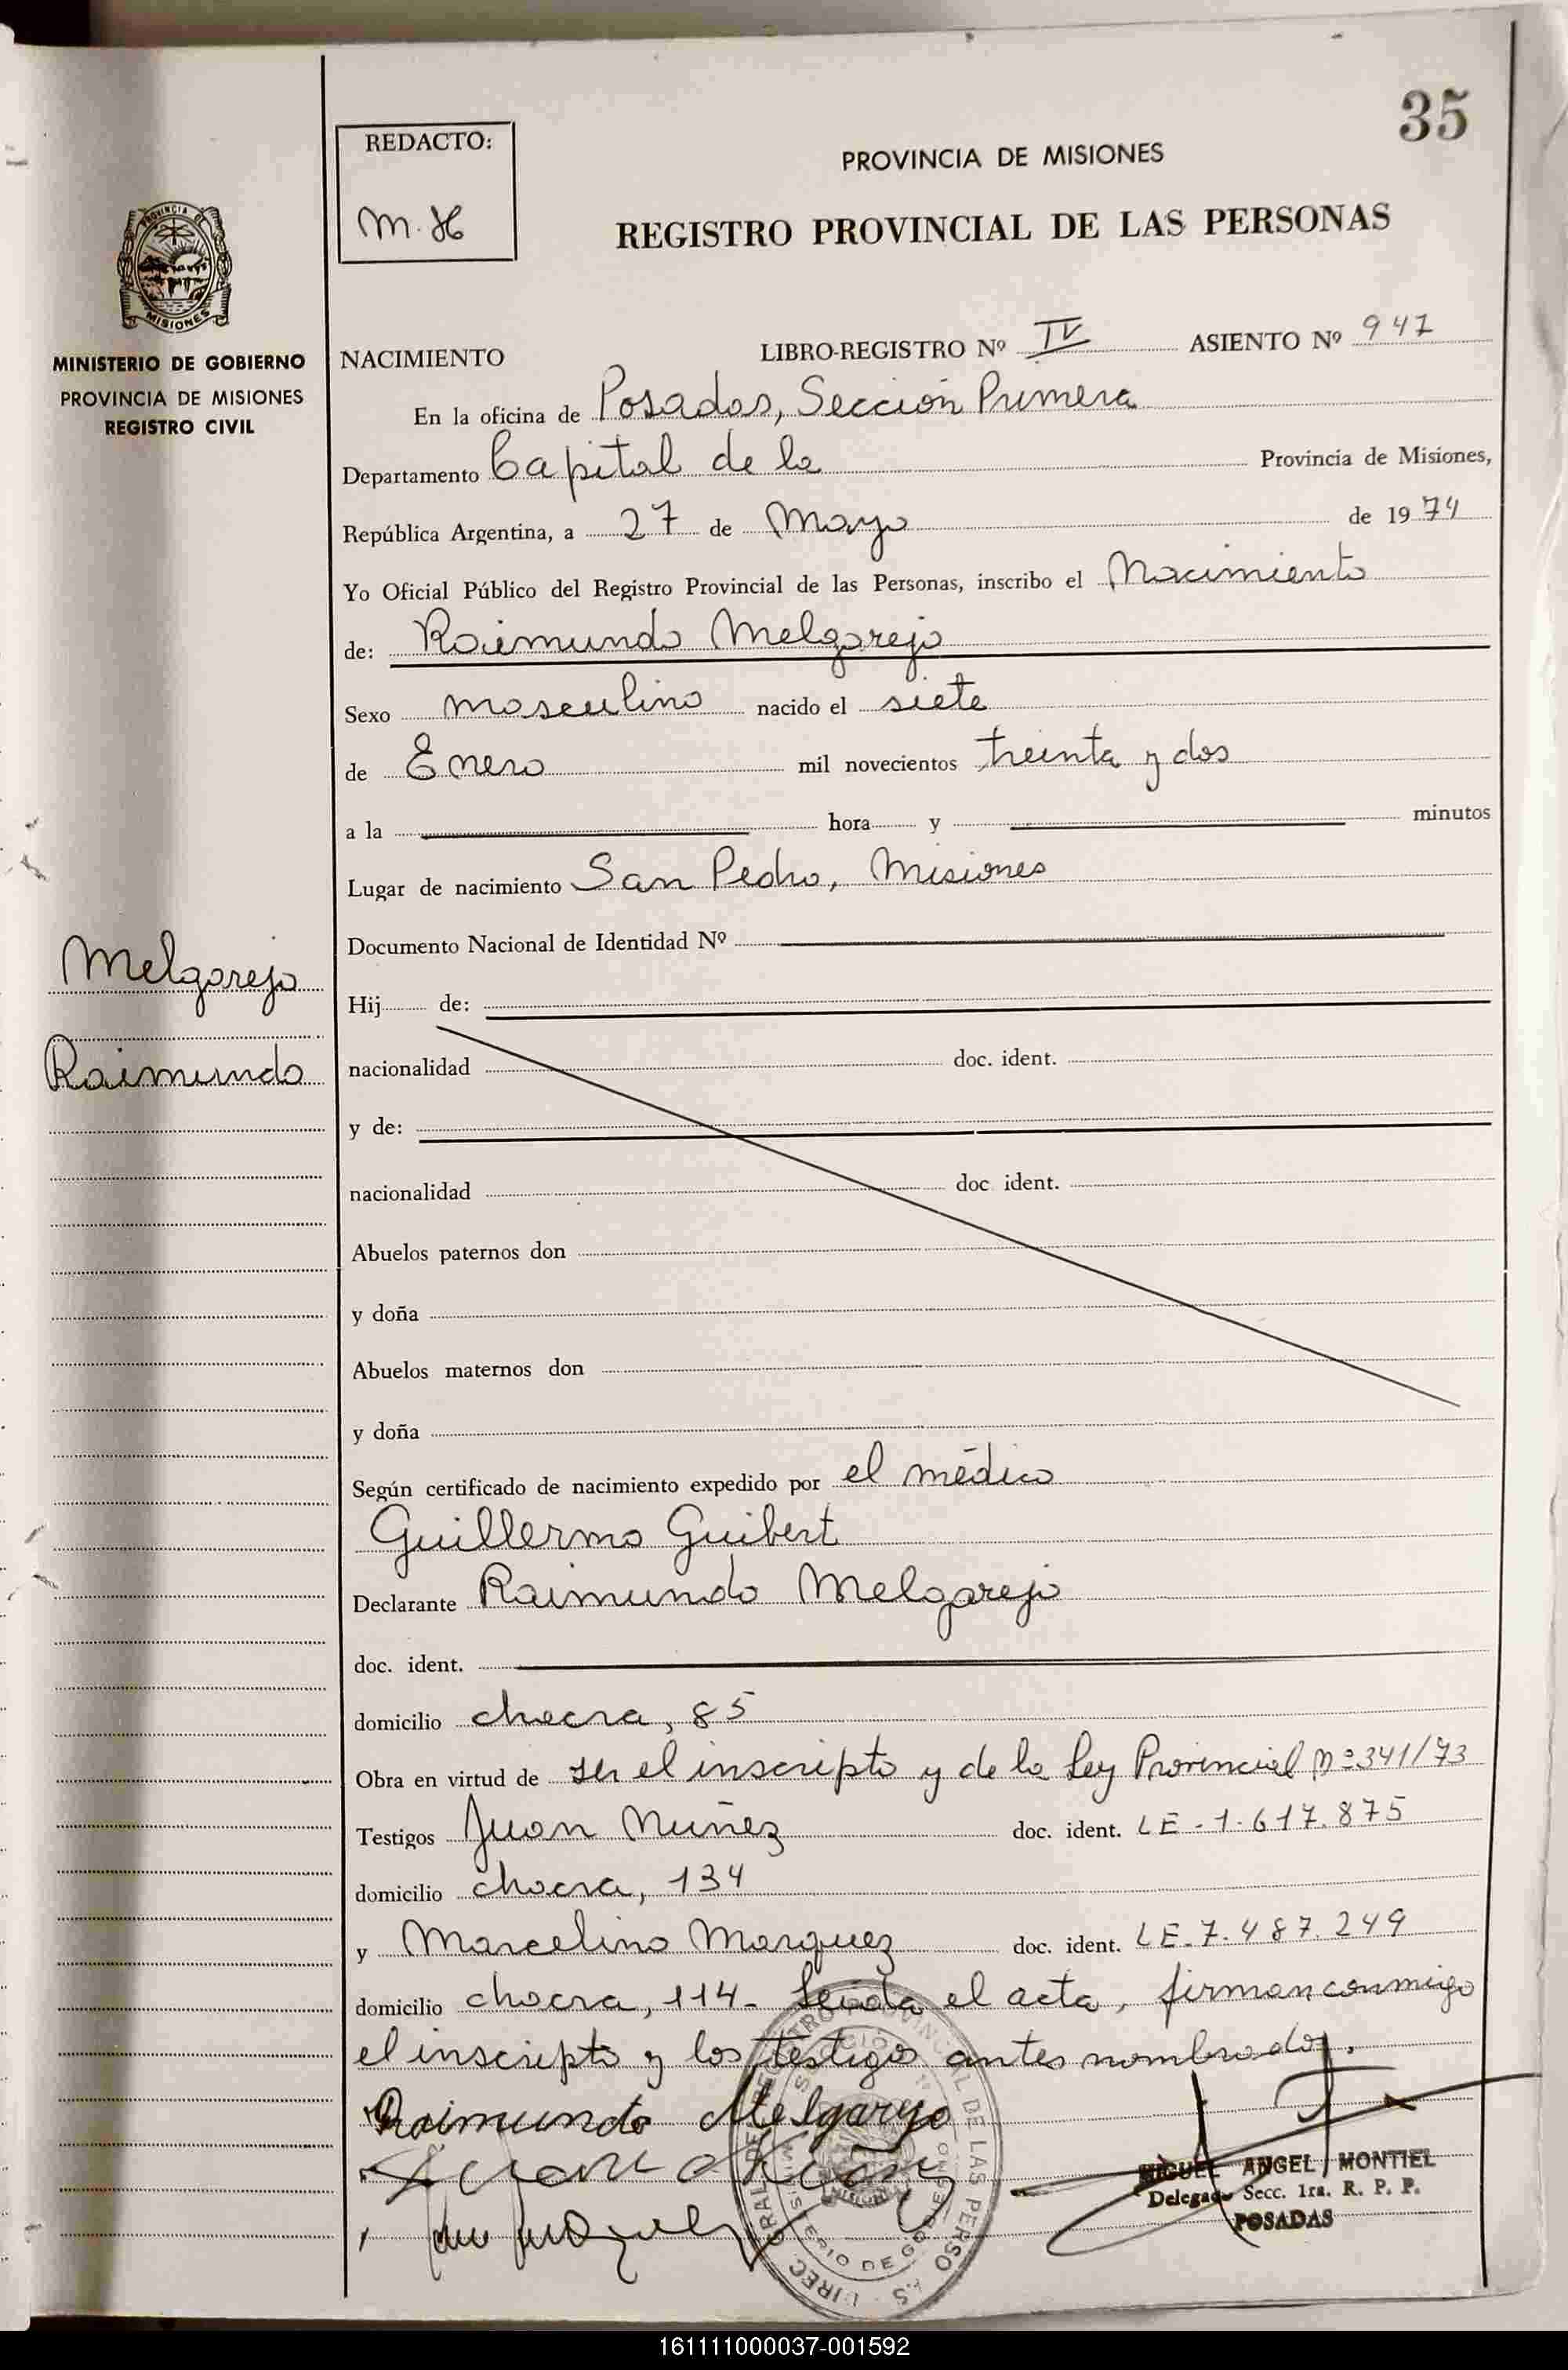 35
REDACTO:
M. H
PROVINCIA DE MISIONES
REGISTRO PROVINCIAL DE LAS PERSONAS
PROVINCIA DE
MISIONES
MINISTERIO DE GOBIERNO
PROVINCIA DE MISIONES
REGISTRO CIVIL
NACIMIENTO LIBRO-REGISTRO Nº IV ASIENTO Nº 947
En la oficina de Posadas, Sección Primera
Departamento Capital de la Provincia de Misiones,
República Argentina, a 27 de Mayo de 1974
Yo Oficial Público del Registro Provincial de las Personas, inscribo el Nacimiento
de: Raimundo Melgarejo
Sexo masculino nacido el siete
de Enero mil novecientos treinta y dos
a la hora y minutos
Lugar de nacimiento San Pedro, Misiones
Documento Nacional de Identidad Nº
Melgarejo
Raimundo
Hij de:
nacionalidad doc. ident.
y de:
nacionalidad doc ident.
Abuelos paternos don
y doña
Abuelos maternos don
y doña
Según certificado de nacimiento expedido por el médico
Guillermo Guibert
Declarante Raimundo Melgarejo
doc. ident.
domicilio chacra, 85
Obra en virtud de ser el inscripto y de la Ley Provincial Nº 341/73
Testigos Juan Nuñez doc. ident. LE-1.617.875
domicilio chacra, 134
y Marcelino Marquez doc. ident. LE-7.487.249
domicilio chacra, 114- Leida el acta, firman conmigo
el inscripto y los testigos antes nombrados.
Raimundo Melgarejo
MIGUEL ANGEL MONTIEL
Delegado Secc. 1ra. R. P. P.
POSADAS
161111000037-001592